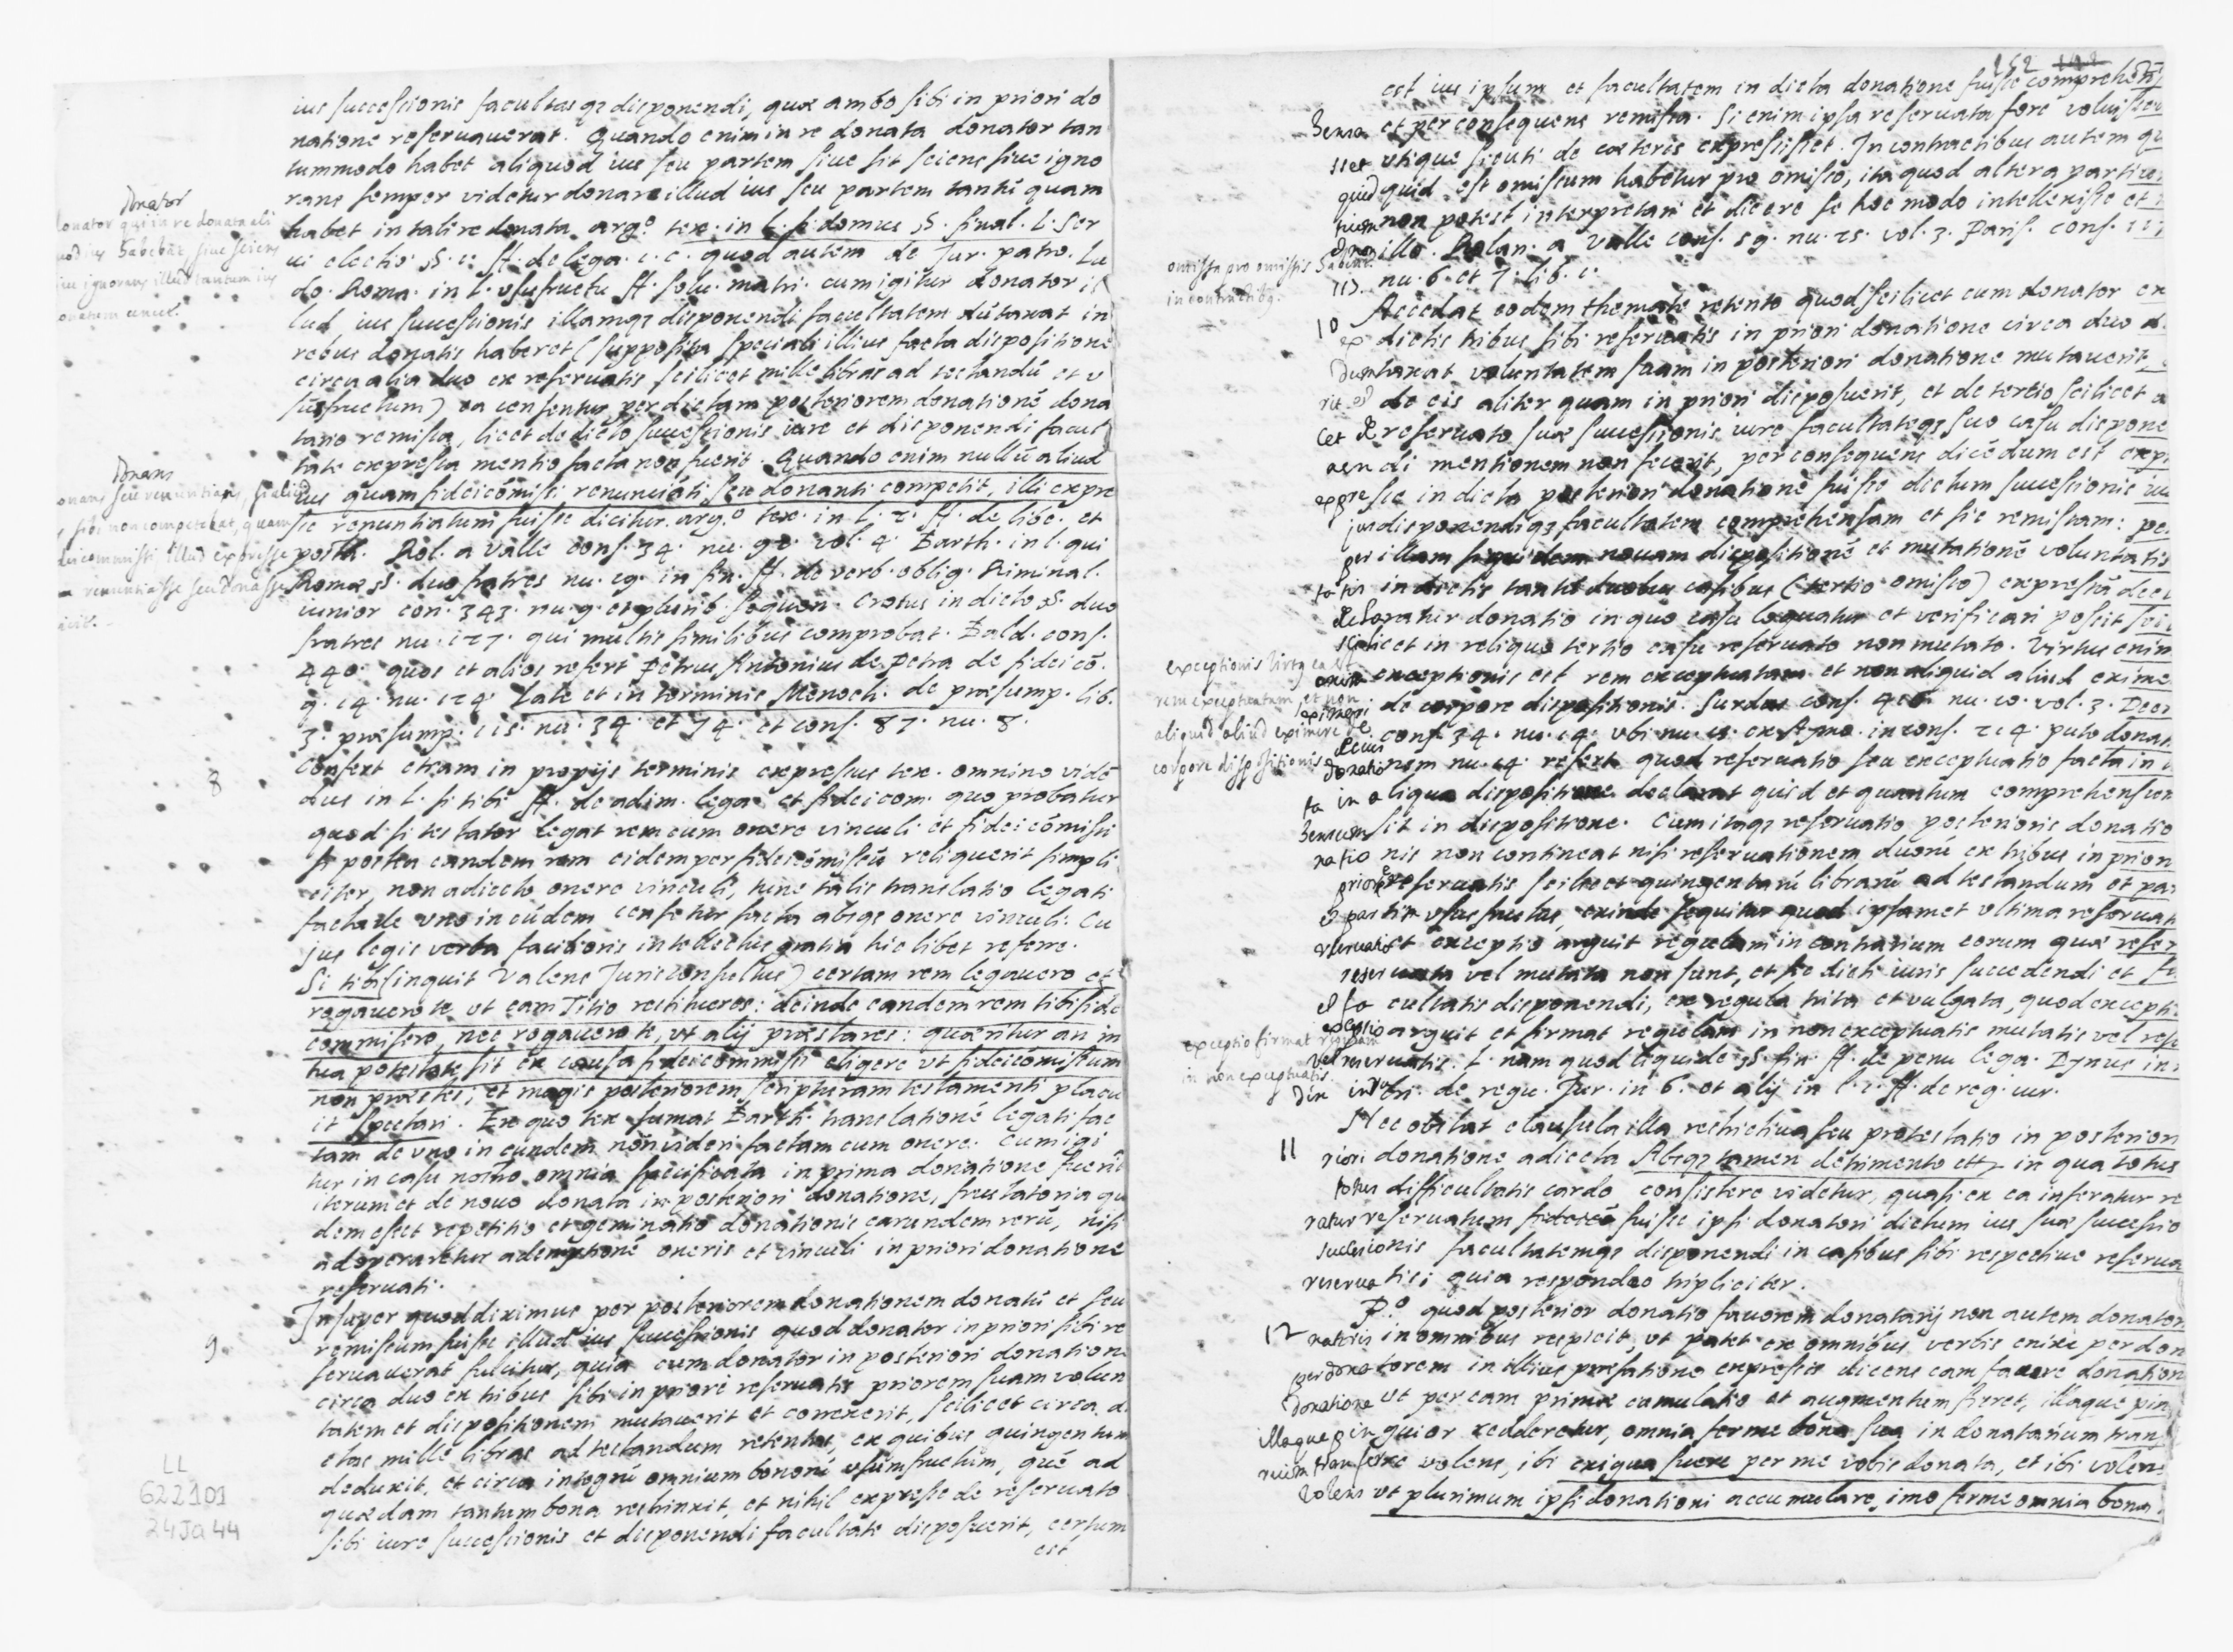 ius successionis facultasq3 disponendi, quæ ambo sibi in priori do
natione reseruauerat. Quando enim in re donata donator tan
tummodo habet aliquod ius seu partem siue sit sciens siue igno
rans semper videtur donare illud ius seu partem tantũ quam
habet in tali re donata arg.º tex. in l. si domus §. final. l. Ser
ui electio §. 1. ff. de lega. 1. c. quod autem de Jur. patro. Lu
do. Roma. in l. usufructu ff. solu. matri. cum igitur donator il
lud ius successionis illamq3 disponendi facultatem dũtaxat in
rebus donatis haberet (supposita speciali illius facta dispositione
circa alia duo ex reseruatis scilicet mille libras ad testandũ et v
sũfructum) ea censentur per dictam posteriorem donationẽ dona
tario remissa, licet de dicto successionis iure et disponendi facul
tate expressa mentio facta non fuerit. Quando enim nullũ aliud
ius quam fideicõmissi renuncianti seu donanti competit, illi expre
sse renuntiatum fuisse dicitur. arg.º tex. in l. 2. ff. de libe. et
posth. Rol. a Valle cons. 34. nu. 90. vol. 4. Barth. in l. qui
Romæ §. duo fratres nu. 19. in fin. ff. de verb. oblig. Riminal.
iunior con. 343. nu. 9. et plurib. sequen. Crotus in dicto §. duo
fratres nu. 127. qui multis similibus comprobat. Bald. cons.
440. quos et alios refert Petrus Antonius de Petra de fideicõ.
q. 14. nu. 124. Late et in terminis Menoch. de præsump. lib.
3. præsump. 115. nu. 34. et 74. et cons. 87. nu. 8.
8 Confert etiam in proprijs terminis expressus tex. omnino vidẽ
dus in l. si tibi ff. de adim. lega. et fideicom. quo probatur
quod si testator legat rem cum onere vinculi et fideicõmissi
si postea eandem rem eidem per fideicõmissũ reliquerit simpli
citer, non adiecto onere vinculi, tunc talis translatio legati
facta de uno in eũdem censetur facta absq3 onere vinculi. Cu
jus legis verba facilioris intellectus gratia hic libet referre.
Si tibi (inquit Valens Jurisconsultus) certam rem legauero et
rogauero te, ut eam Titio restitueres: deinde eandem rem tibi fidei
commisero, nec rogauero te, ut alij præstares: quæritur an in
tua potestate sit ex causa fideicommissi eligere ut fideicõmissum
non præstes; et magis posteriorem scripturam testamenti placu
it spectari. Ex quo tex. sumat Barth. translationẽ legati fac
tam de uno in eundem nõ videri factam cum onere. Cum igi
tur in casu nostro omnia specificata in prima donatione fuerĩt
iterum et de nouo donata in posteriori donatione, frustatoria qui
dem esset repetitio et geminatio donationis earundem rerũ, nisi
adoperaretur ademptionẽ oneris et vinculi in priori donatione
reseruati.
9. Insuper quod diximus per posteriorem donationem donatũ et seu
remissum fuisse illud ius successionis quod donator in priori sibi re
seruauerat fulcitur, quia cum donator in posteriori donatione
circa duo ex tribus sibi in priore reseruatis priorem suam volun
tatem et dispositionem mutauerit et correxerit, scilicet circa di
ctas mille libras ad testandum retentas, ex quibus quingentum
deduxit, et circa integrũ omnium bonorũ usumfructum, quẽ ad
quædam tantum bona restrinxit, et nihil expresse de reseruato
sibi iure successionis et disponendi facultate disposuerit, certum
est
Donator
donator qui in re donata ali
quod ius habebat, siue sciens
siue ignorans illud tantum ius
donatum
Donans
donans seu renuntians, si aliud
sibi non competebat, quam
fideicommissi illud expresse
renuntiasse seu donasse
LL
622101
24Ja44
152 148
est ius ipsum et facultatem in dicta donatione fuisse comprehen
et per consequens remissa. Si enim ipsa reseruata fore voluisset
utique sicuti de cæteris expressisset. In contractibus autem qu
quid est omissum habetur pro omisso, ita quod altera partium
non potest interpretari et dicere se hoc modo intellexisse et
illo. Rolan. a Valle cons. 59. nu. 25. vol. 3. Paris. cons. 113
nu. 6. et 7. lib. 1.
omissa pro omissis habentur
in contractibq.
10 Accedat eodem themate retento quod scilicet cum donator ex
dictis tribus sibi reseruatis in priori donatione circa duo d
dumtaxat voluntatem suam in posteriori donatione mutauerit,
de eis aliter quam in priori disposuerit, et de tertio scilicet d
reseruato suæ successionis iure facultateq3 suo casu dispone
di mentionem non fecerit, per consequens dicẽdum est expre
sse in dicta posteriori donatione fuisse dictum successionis ius
disponendiq3 facultatem comprehensam et sic remissam: pe
illam siquidem nouam dispositionẽ et mutationẽ voluntatis
in dictis tantũ duobus casibus (tertio omisso) expressã decl
ratur donatio in quo casu loquatur et verificari possit sci
licet in reliquo tertio casu reseruato non mutato. Virtus enim
exceptionis est rem exceptuatam et non aliquid aliud exime
de corpore dispositionis. Surdus cons. 406. nu. 10. vol. 3. Deci
cons. 34. nu. 14. ubi nu. 13. ex Aymo. in cons. 214. puto donat
nem nu. 14. refert quod reseruatio seu exceptuatio facta in
aliqua dispositione declarat quid et quantum comprehensum
sit in dispositione. Cum itaq3 reseruatio posterioris donatio
nis non contineat nisi reseruationem duorũ ex tribus in priori
reseruatis scilicet quingentarũ librarũ ad testandum et par
tis usus fructus, exinde sequitur quod ipsamet ultima reseruati
et exceptio arguit regulam in contrarium eorum quæ reser
uata vel mutata non sunt, et sic dicti iuris succedendi et fa
cultatis disponendi, ex regula trita et vulgata, quod excepti
arguit et firmat regulam in non exceptuatis mutatis vel rese
ruatis. l. nam quod liquide §. fin. ff. de penu lega. Dynus in
in de regu. Jur. in 6. et alij in l. 1. ff. de reg. iur.
exceptionis virtq est
rem exceptuatam et non
aliquid aliud eximere de
corpore dispositionis
exceptio firmat regulam
in non exceptuatis
11 Nec obstat clausula illa restrictiua seu protestatio in posteriori
donatione adiecta Absq3 tamen detrimento ett. in qua totus
difficultatis cardo consistere videtur, quasi ex ea inferatur re
seruatum fuisse ipsi donatori dictum ius suæ successio
nis facultatemq3 disponendi in casibus sibi respectiue reserua
tis; quia respondeo tripliciter.
12 P.º quod posterior donatio fauorem donatarij non autem donatori
in omnibus respicit, ut patet ex omnibus verbis enixe per don
torem in illius præfatione expressis dicens eam facere donation
ut per eam primæ cumulatio et augmentum fieret, illaque pin
guior redderetur, omnia ferme bona sua in donatarium tran
ferre volens, ibi exigua fuere per me vobis donata, et ibi volens
ut plurimum ipsi donationi accumulare, imo ferme omnia bona